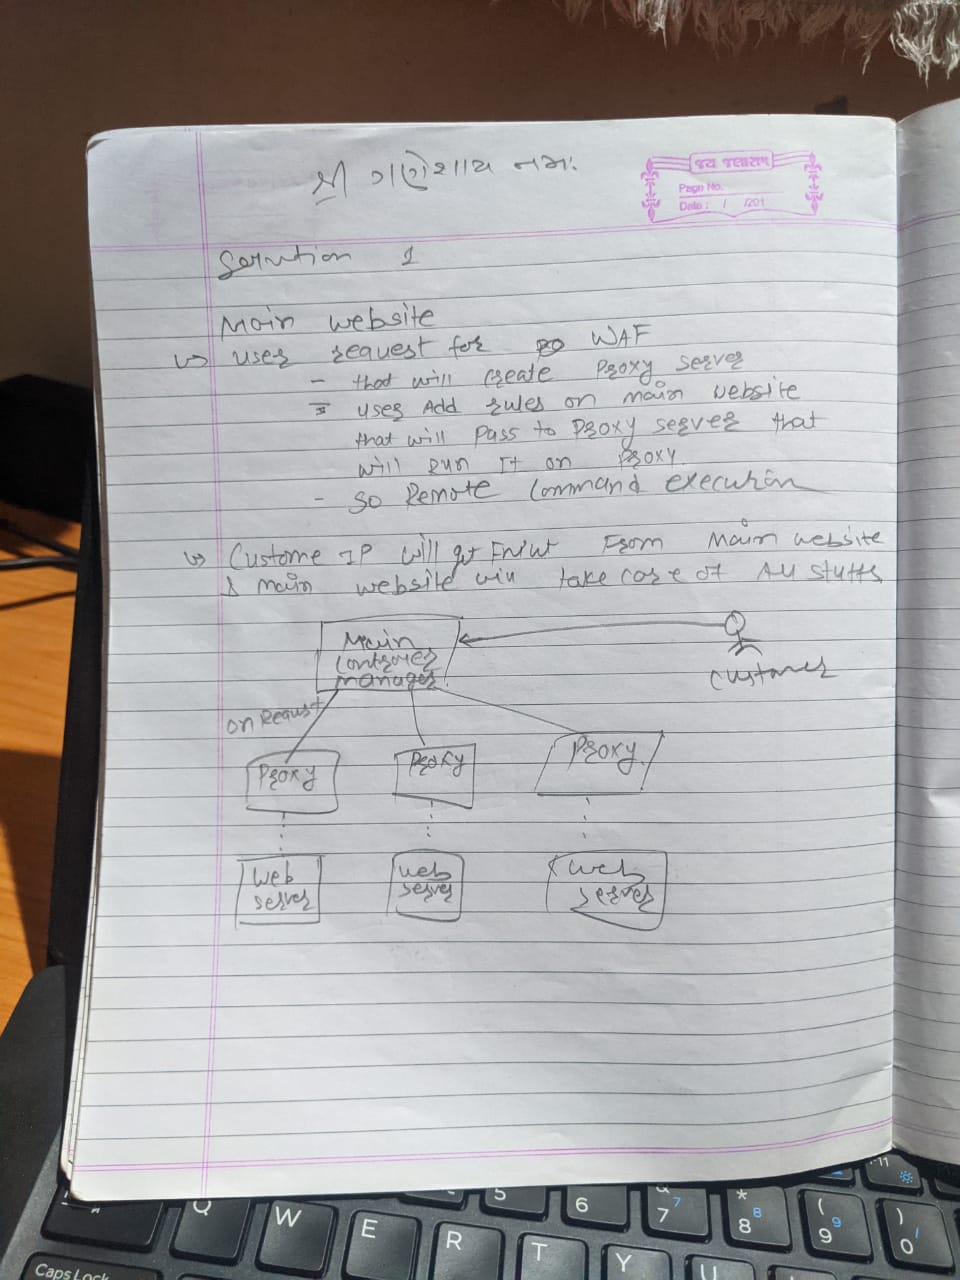 શ્રી ગણેશાય નમઃ
જય જલારામ
Page No.
Date : / /201
Solution 1
Main website
user request for WAF
- that will create Proxy server
= user Add rules on main website
that will Pass to Proxy server that
will run It on Proxy.
- so Remote Command execution
Custome IP will get From Main website
& main website will take care of All stuffs
Main
Controller
manager
customer
on Request
Proxy Proxy Proxy.
web
server
web
server
web
server
Q W E R T Y U
5 6 7 8 9 0
7 8 9
* ( )
CapsLock